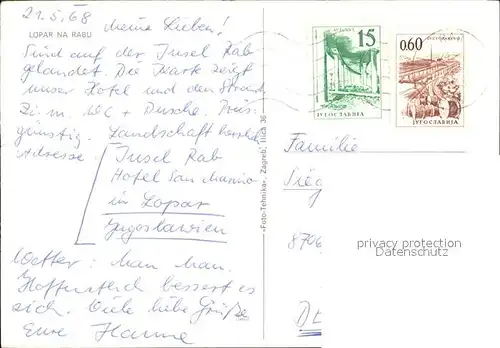 21.5.68
Meine Lieben!
LOPAR NA RABU
Sind auf der Insel Rab
gelandet. Die Karte zeigt
unser Hotel und den Strand
Zi. m. WC + Dusche. Preis=
günstig. Landschaft
Adresse
Insel Rab
Hotel San Marino
in Lopar
Jugoslawien
Wetter: 
Hoffentlich bessert es
sich. Viele liebe Grüße
Eure Hanne
»Foto-Tehnika«, Zagreb, Ilica 36
15
ЈУГОСЛАВИЈА
0.60
JUGOSLAVIJA
Familie
privacy protection
Datenschutz